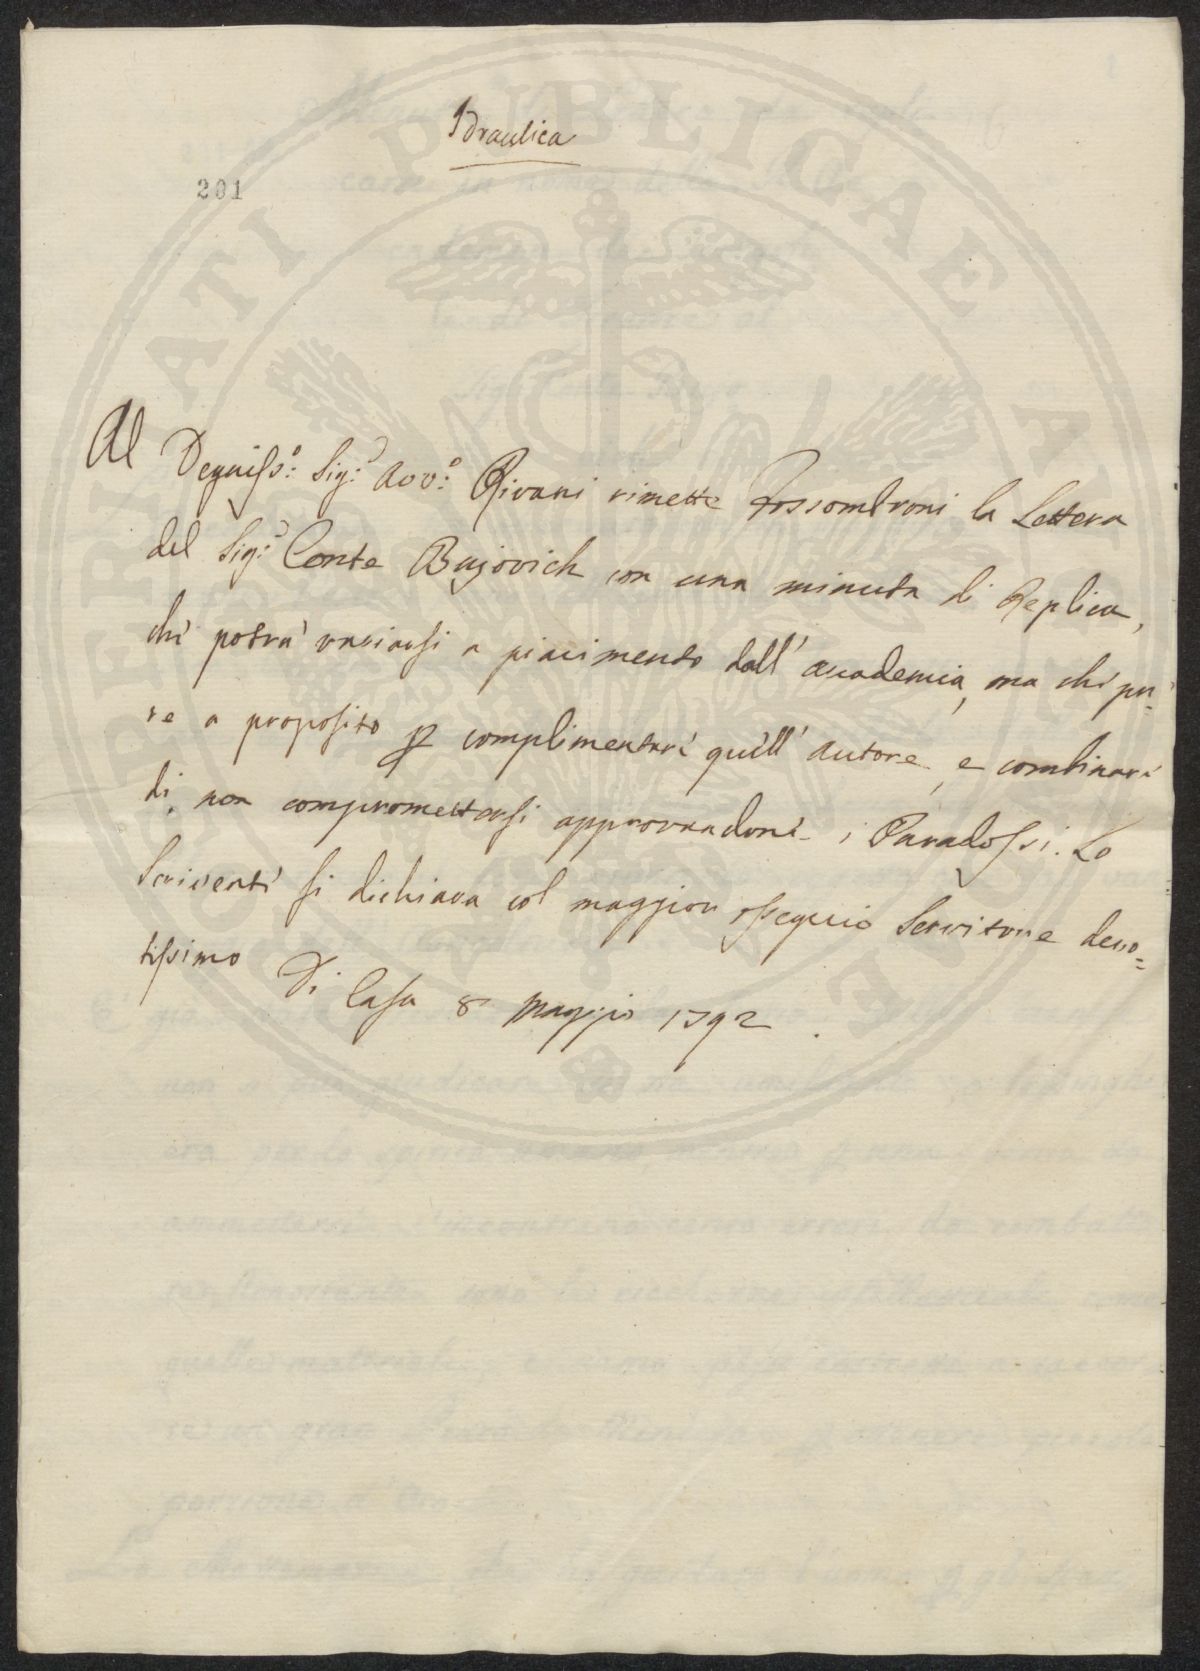 Idraulica
201
PROSPERITATI PUBLICAE AUGENDAE
Al Degniss.º: Sig.r: Avv.º: Rivani rimette Fossombroni la Lettera
del Sig.r: Conte Bujovich con una minuta di Replica,
che potrà variarsi a piacimento dall' accademia, ma che pa=
re a proposito p complimentare quell' autore, e combinare
di non compromettersi approvandone i Paradossi. Lo
Scrivente si dichiara col maggior ossequio Servitore devo=
tissimo Di Casa 8 Maggio 1792.